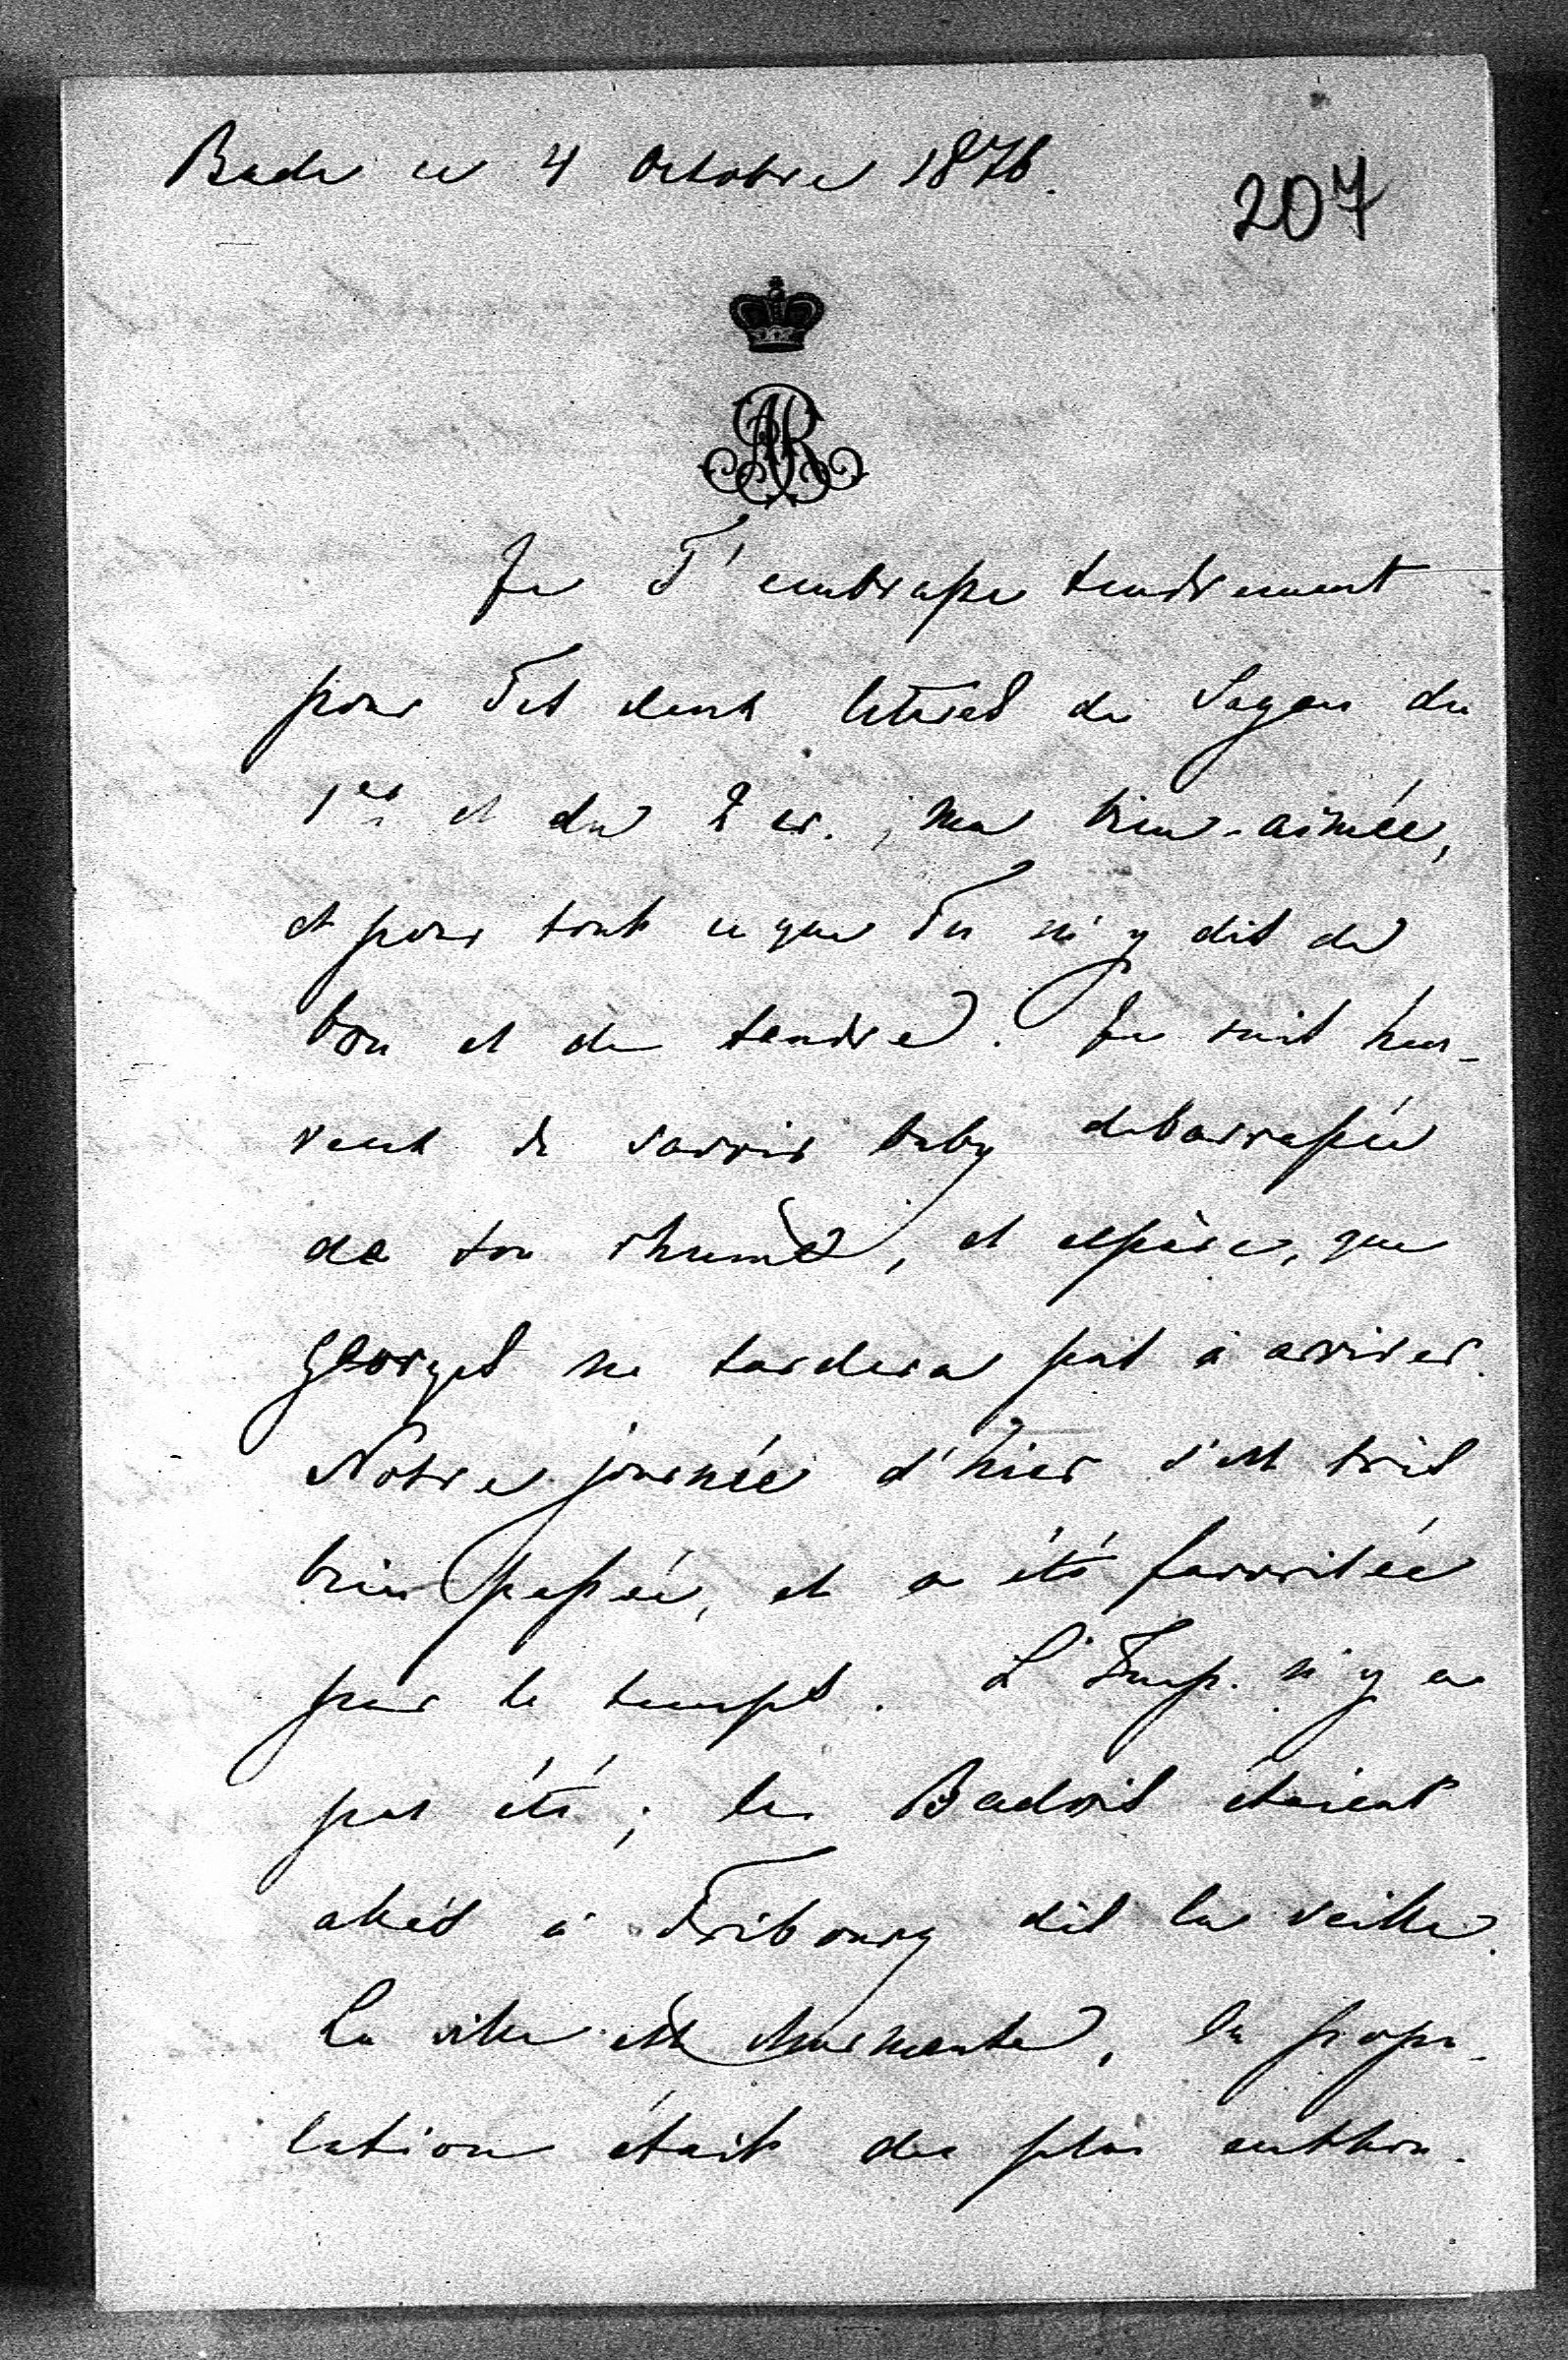 Bade ce 4 Octobre 1876.
207
AR
Je T'embrasse tendrement
pour Tes deux lettres de Sagan du
1er et du 2 cr., ma bien-aimée,
et pour tout ce que Tu m'y dis de
bon et de tendre. Je suis heu-
reux de savoir baby debarrassée
de son rhume, et espère, que
Georges ne tardera pas à arriver.
Notre journée d'hier s'est très
bien passée, et a été favorisée
par le temps. L'Imp. n'y a
pas été; les Badois étaient
allés à Fribourg dès la veille.
La ville est charmante, la popu-
lation était des plus enthou-